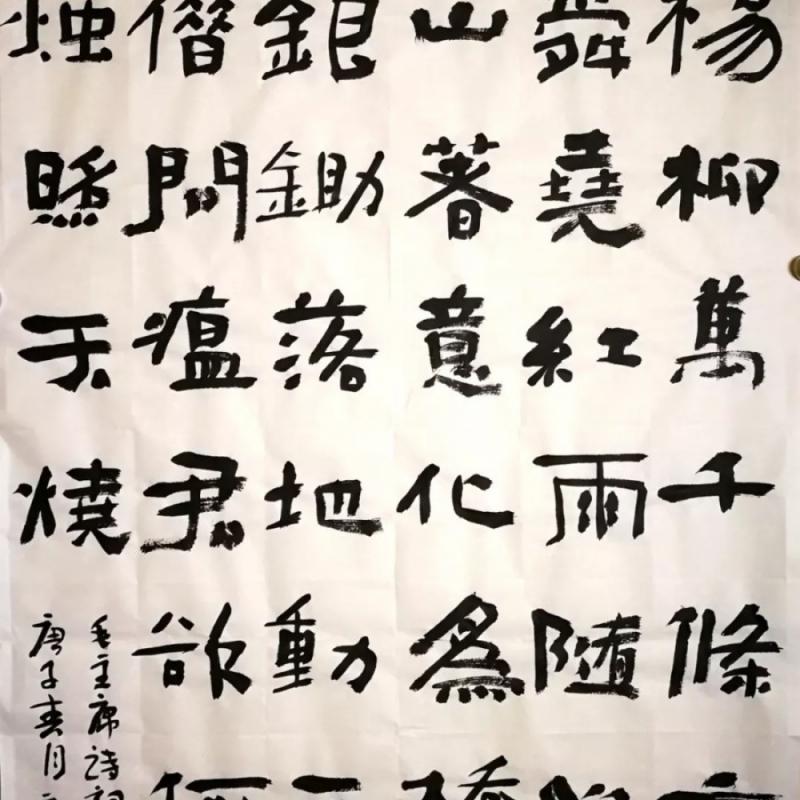 楊柳萬千條
舜堯紅雨隨
山著意化為
銀鋤落地動
借問瘟君欲
烛照天燒
毛主席詩詞
庚子春月